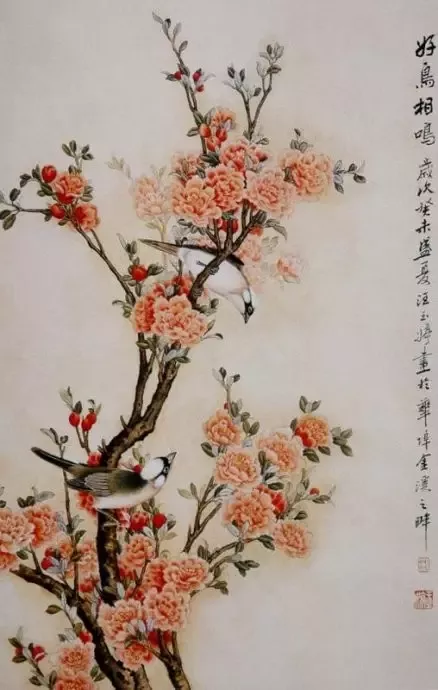 好鳥相鳴 歲次癸未盛夏汪玉婷畫於華埠金溪之畔